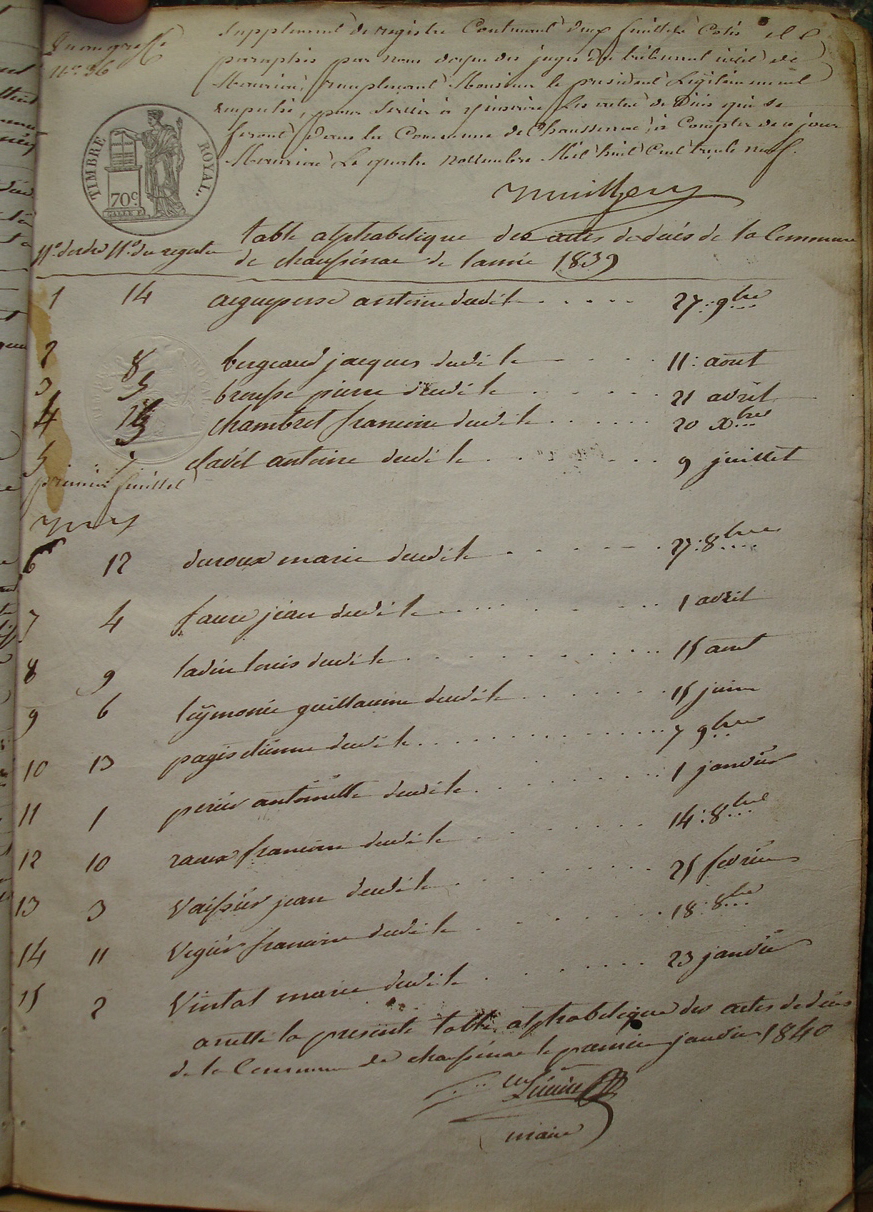 Supplement de registre Contenant deux feuillets Cotés et
paraphés par nous doyen des juges du tribunal civil de
Mauriac, remplaçant Monsieur le president Legitimement
empeché, pour Servir à inscrire Les actes de Décès qui se
feront dans la Commune de Chaussenac, à Compter de ce jour
Mauriac Le quatre novembre Mil huit Cent trente neuf
N° 36
TIMBRE ROYAL.
70c
n° dordre n° du registre table alphabetique des actes de décés de la Commune
de chaussenac de l'année 1839
1 14 aigueperse antoine decédé le 27: 9bre
2 8 bergeaud jacques decédé le 11: aout
3 5 brousse pierre decédé le 21 avril
4 15 chambret francoise decédé le 20 Xbre
5 7 clavel antoine decédé le 9 juillet
premier feuillet
6 12 duroux marie decédé le 27: 8bre
7 4 faure jean decédé le 1 avril
8 9 ladin louis decédé le 15 aout
9 6 leymonie guillaume decédé le 15 juin
10 13 pagis etienne decédé le 7 9bre
11 1 perier antoinette decédé le 1 janvier
12 10 raoux francoise decédé le 14: 8bre
13 3 Vaissier jean decédé le 25 fevrier
14 11 Vigier francoise decédé le 18: 8bre
15 2 Vintal marie decédé le 23 janvier
arretté la presente table alphabetique des actes de décés
de la Commune de chaussenac le premier janvier 1840
maire